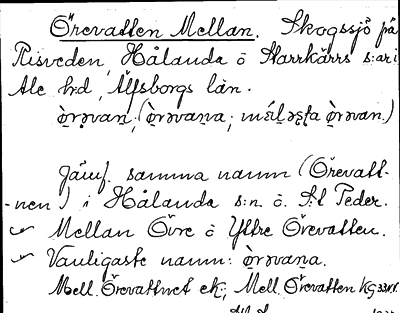 Örevatten Mellan. Skogssjö på
Risveden, Hålanda o Starrkärrs s:ar i
Ale hd, Älfsborgs län.
ò̱rəvan, (ò̱rəvaṉa,
Jämf. samma namn (Örevatt-
-nen) i Hålanda s:n. o. S:t Peder.
Mellan Övre o Yttre Örevatten.
Vanligaste namn: ò̱rəvaṉa.
Mell. Örevattnet ek.; Mell. Örevatten